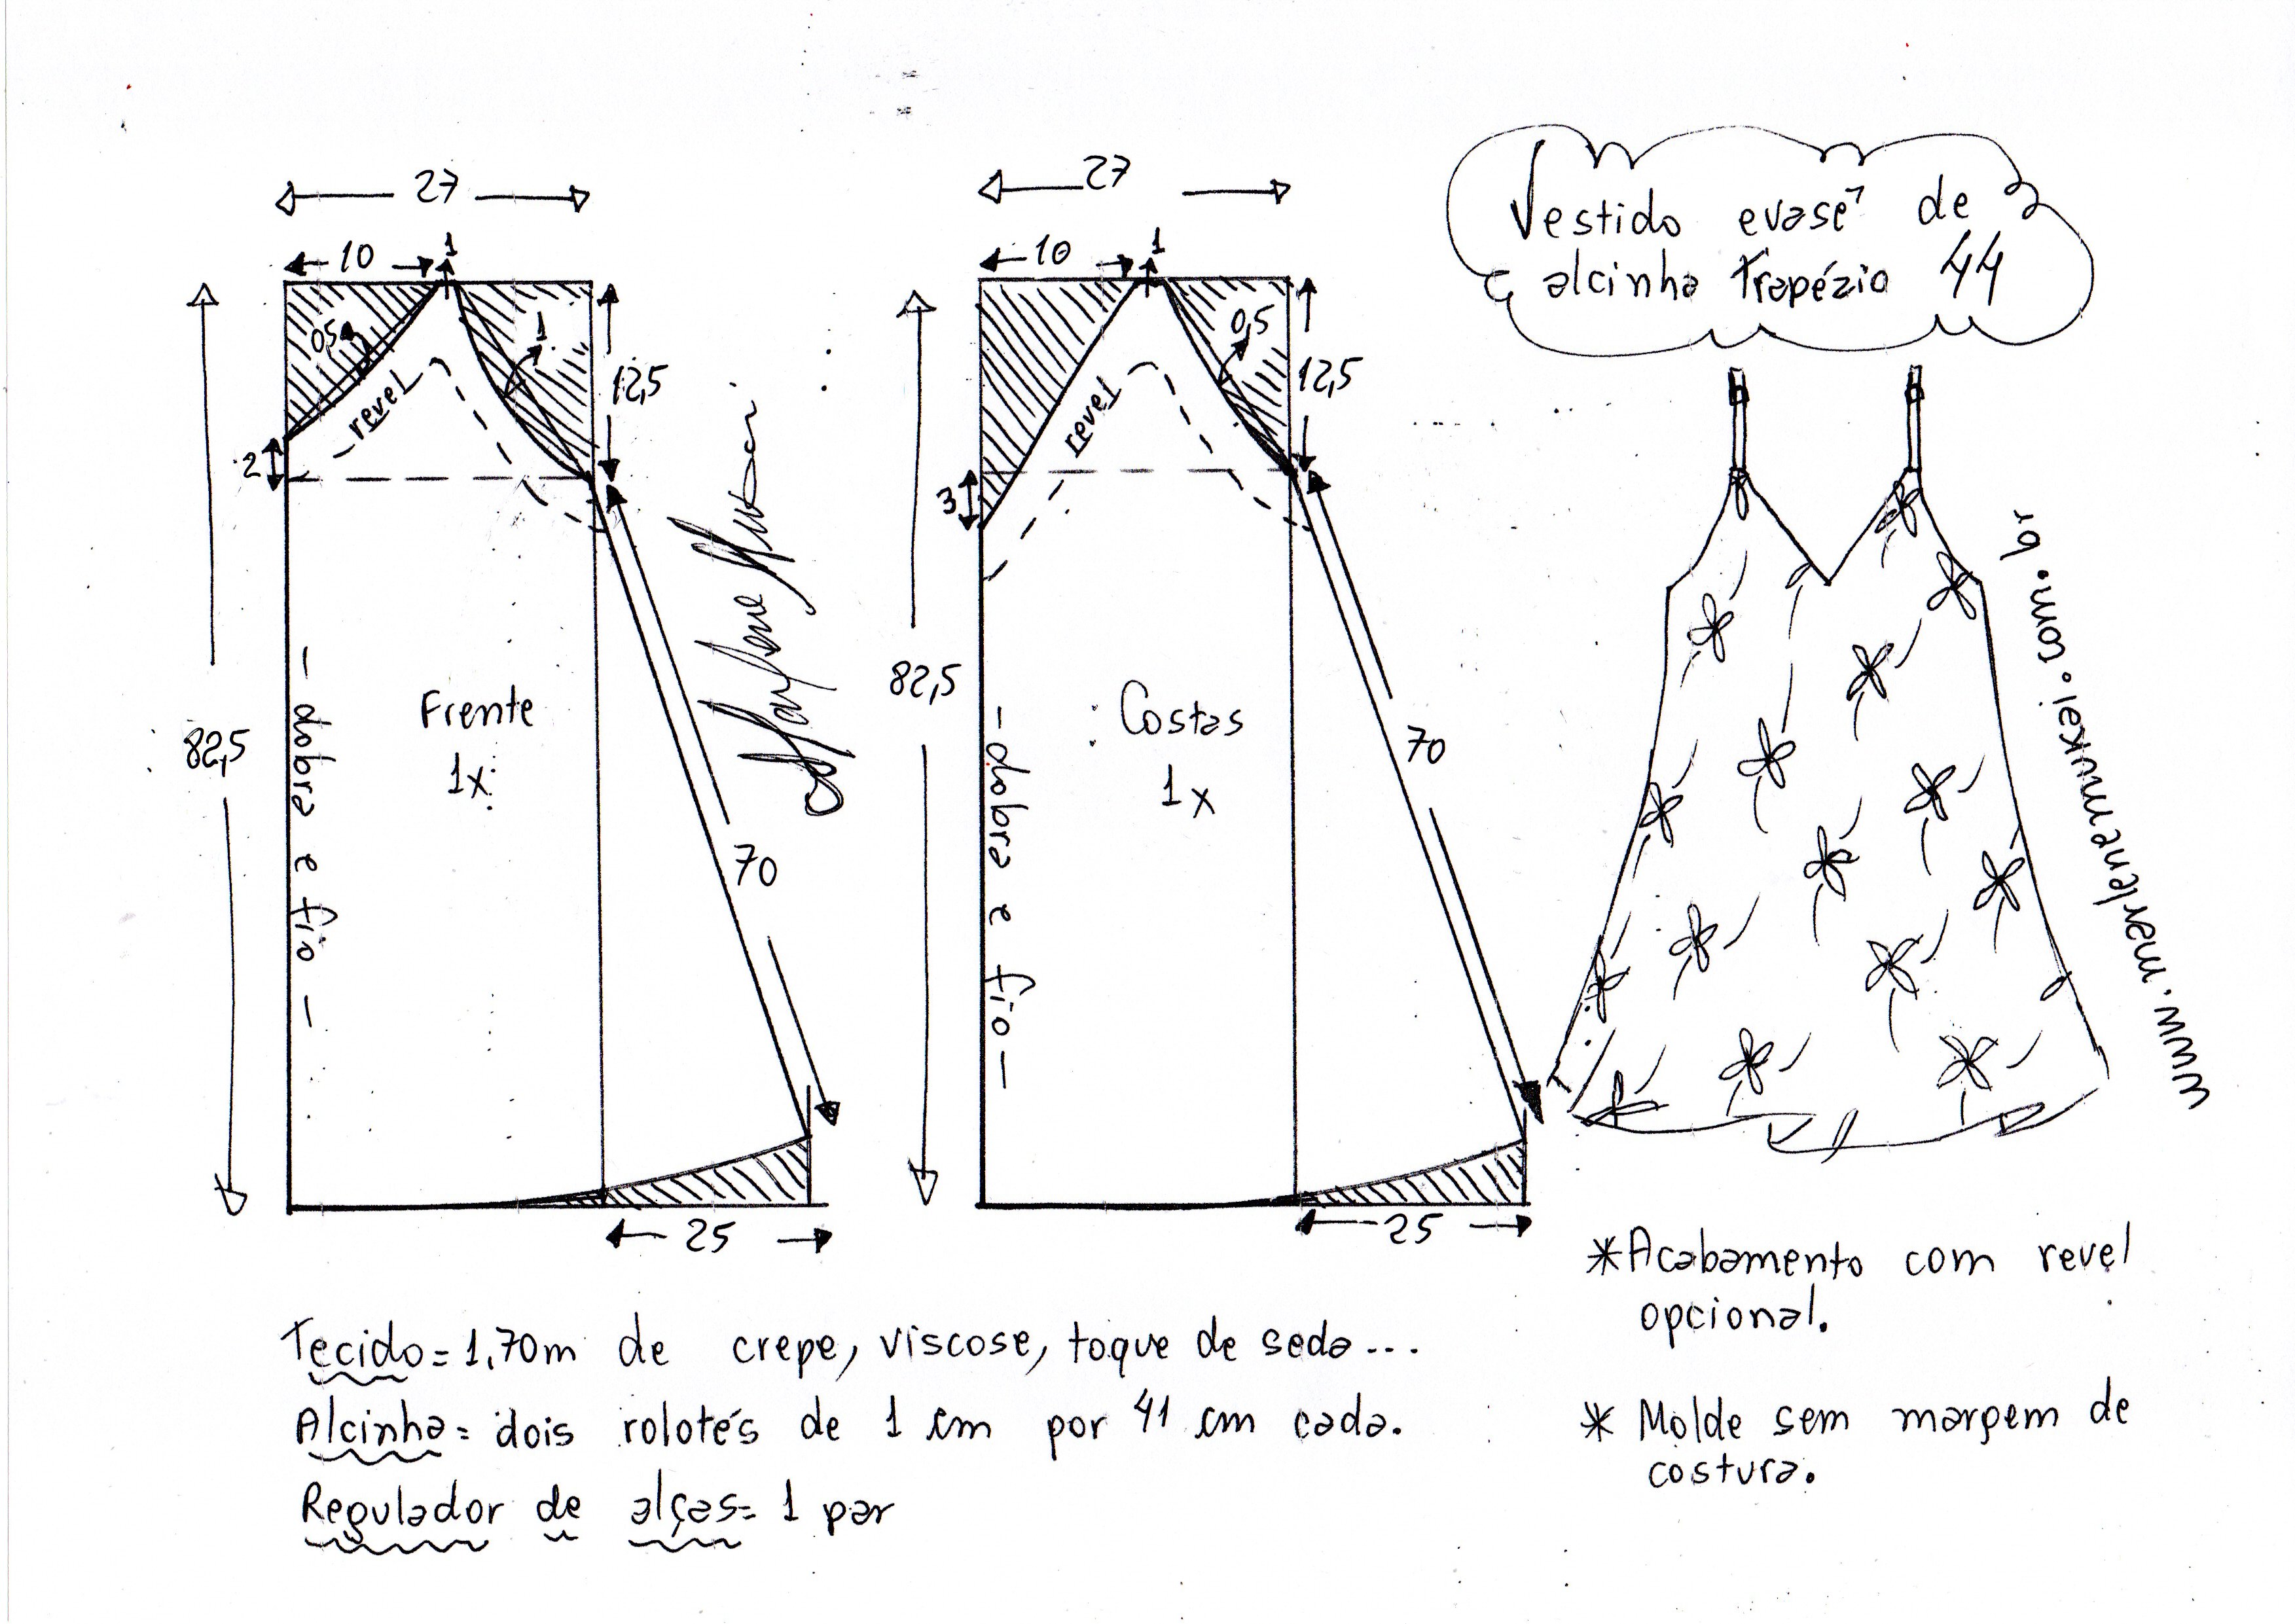 Vestido evasê de
alcinha Trapézio 44
27
10
1
05
1
12,5
revel
2
82,5
Frente
1x
- dobra e fio -
70
25
27
10
1
0,5
12,5
revel
3
82,5
Costas
1x
- dobra e fio -
70
25
www.marlenemukai.com.br
*Acabamento com revel
opcional.
* Molde sem margem de
costura.
Tecido = 1,70m de crepe, viscose, toque de seda...
Alcinha = dois rolotés de 1 cm por 41 cm cada.
Regulador de alças = 1 par